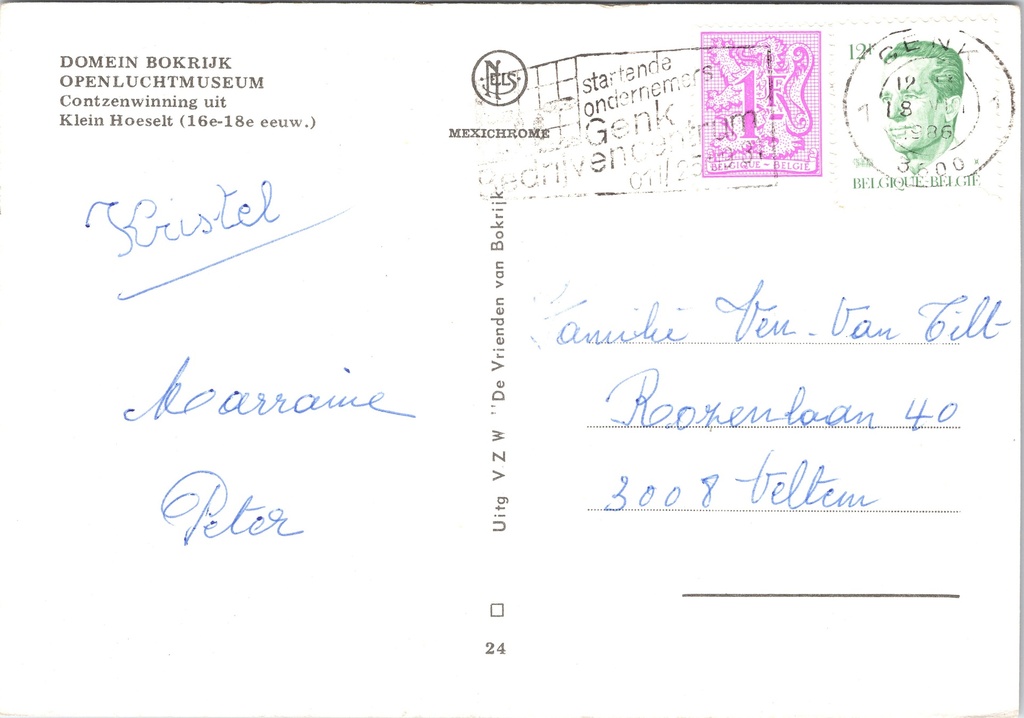 DOMEIN BOKRIJK
OPENLUCHTMUSEUM
Contzenwinning uit
Klein Hoeselt (16e-18e eeuw.)
NELS
MEXICHROME
startende
ondernemers
Genk
Bedrijvencentrum
011/
1F
BELGIQUE - BELGIË
12F
BELGIQUE-BELGIË
GENK
12
18
1986
3600
Kristel
Marraine
Peter
Uitg V Z W "De Vrienden van Bokrijk
24
Familie Ven - Van Tilt
Rozenlaan 40
3008 Veltem